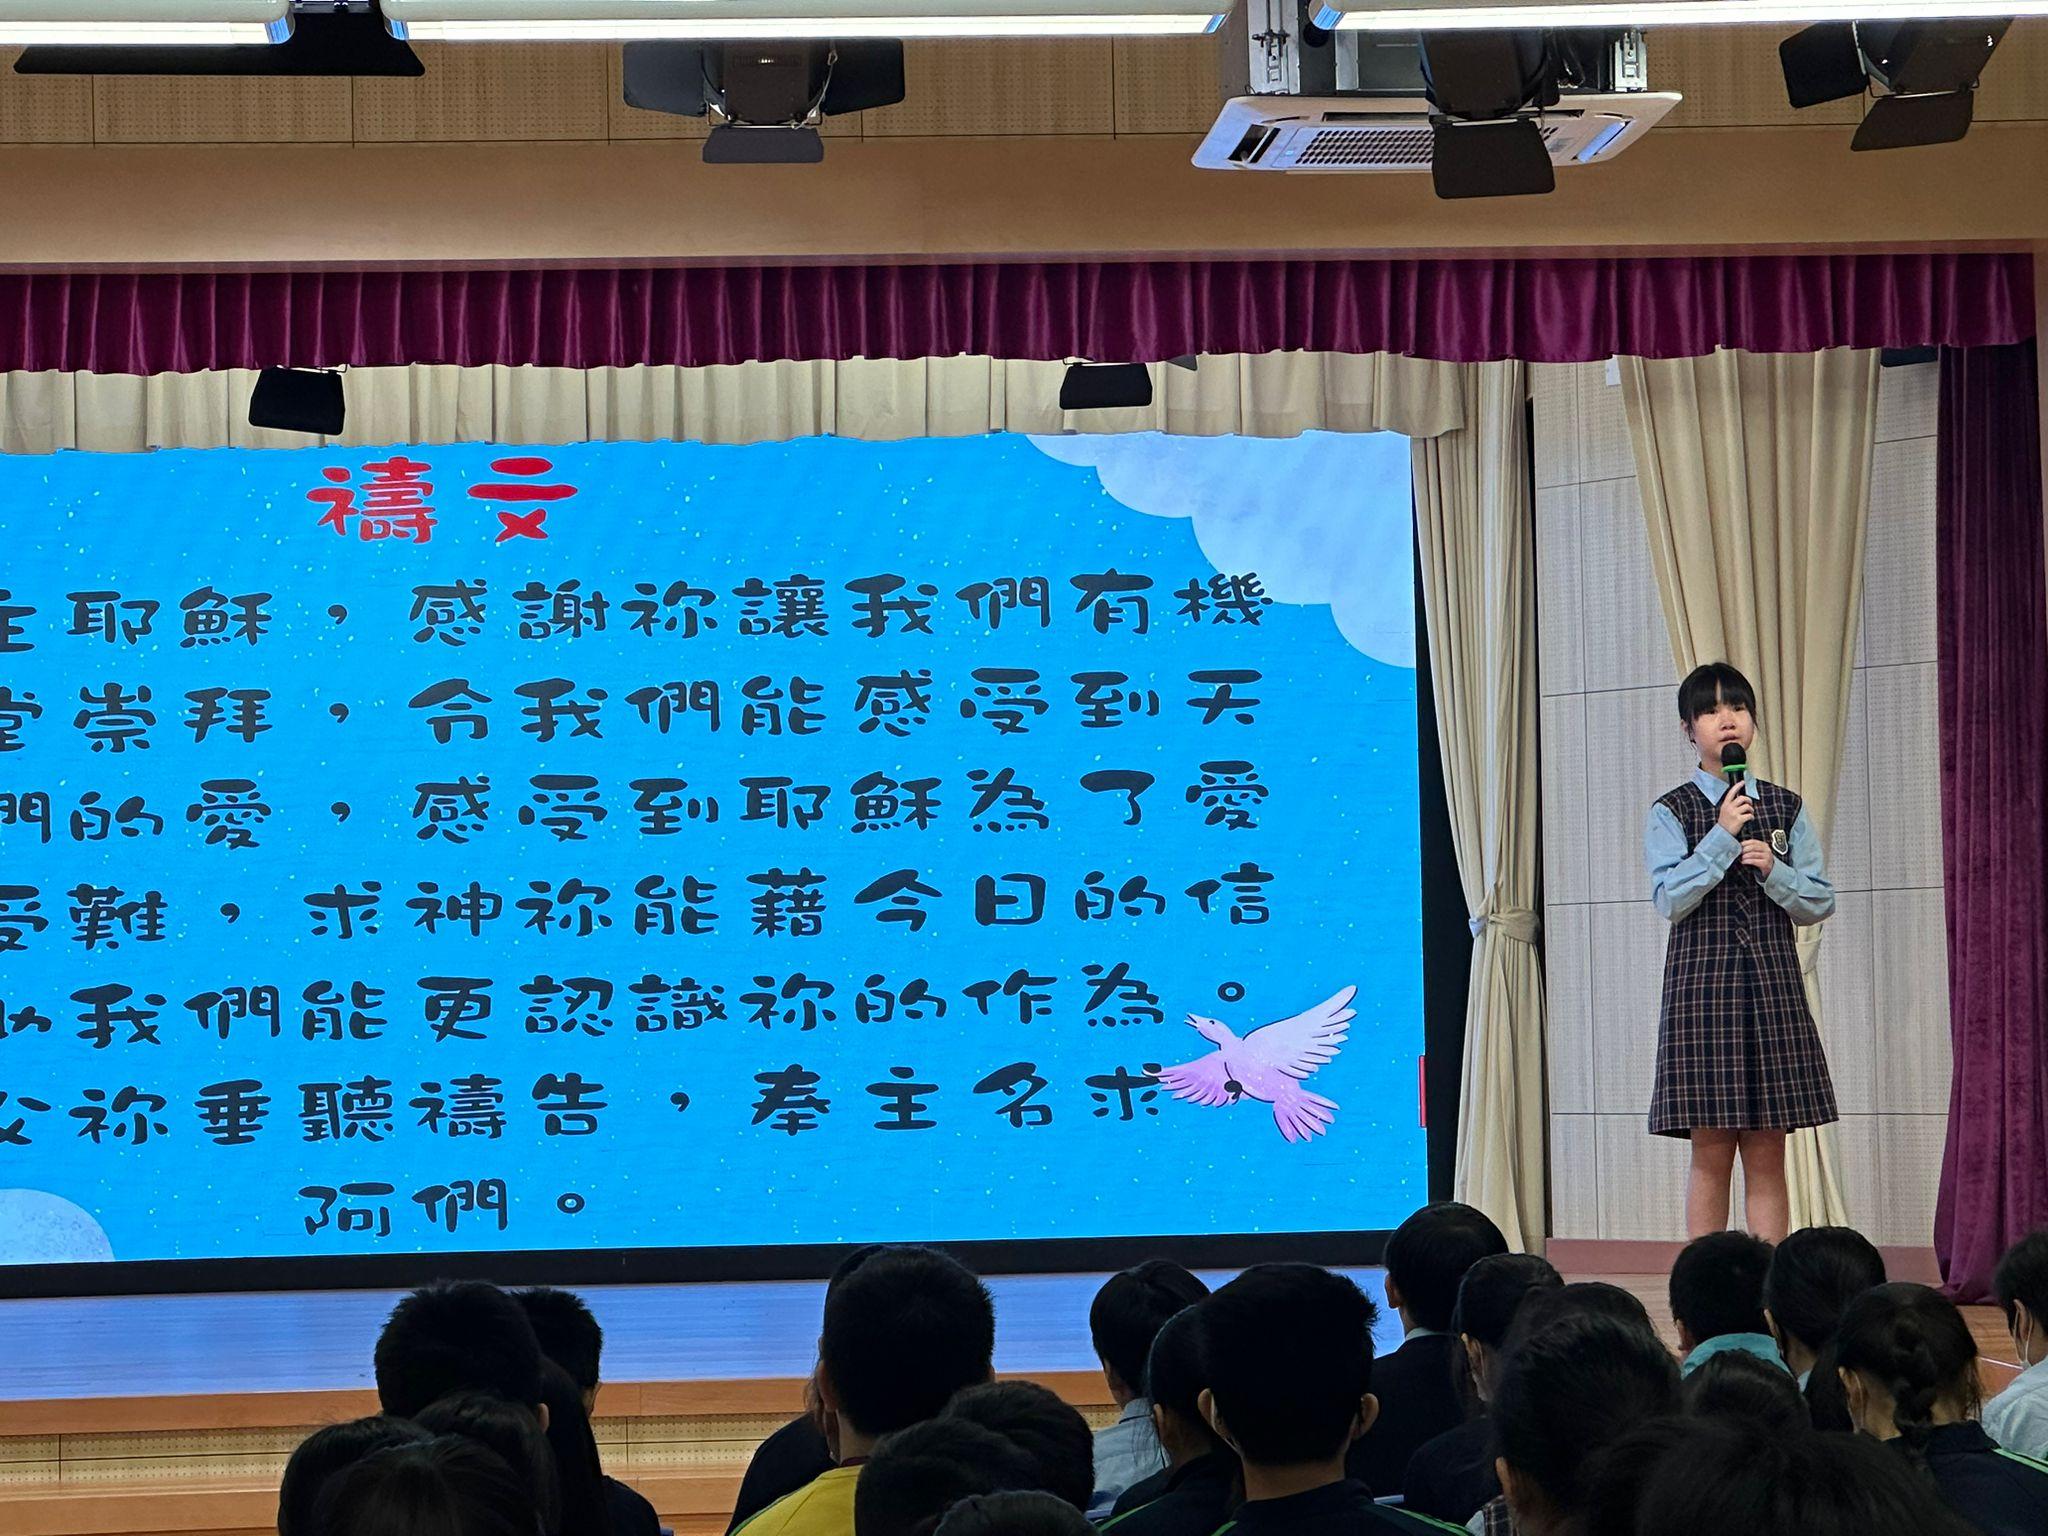 禱文
主耶穌，感謝祢讓我們有機
堂崇拜，令我們能感受到天
們的愛，感受到耶穌為了愛
受難，求神祢能藉今日的信
助我們能更認識祢的作為。
父祢垂聽禱告，奉主名求，
阿們。